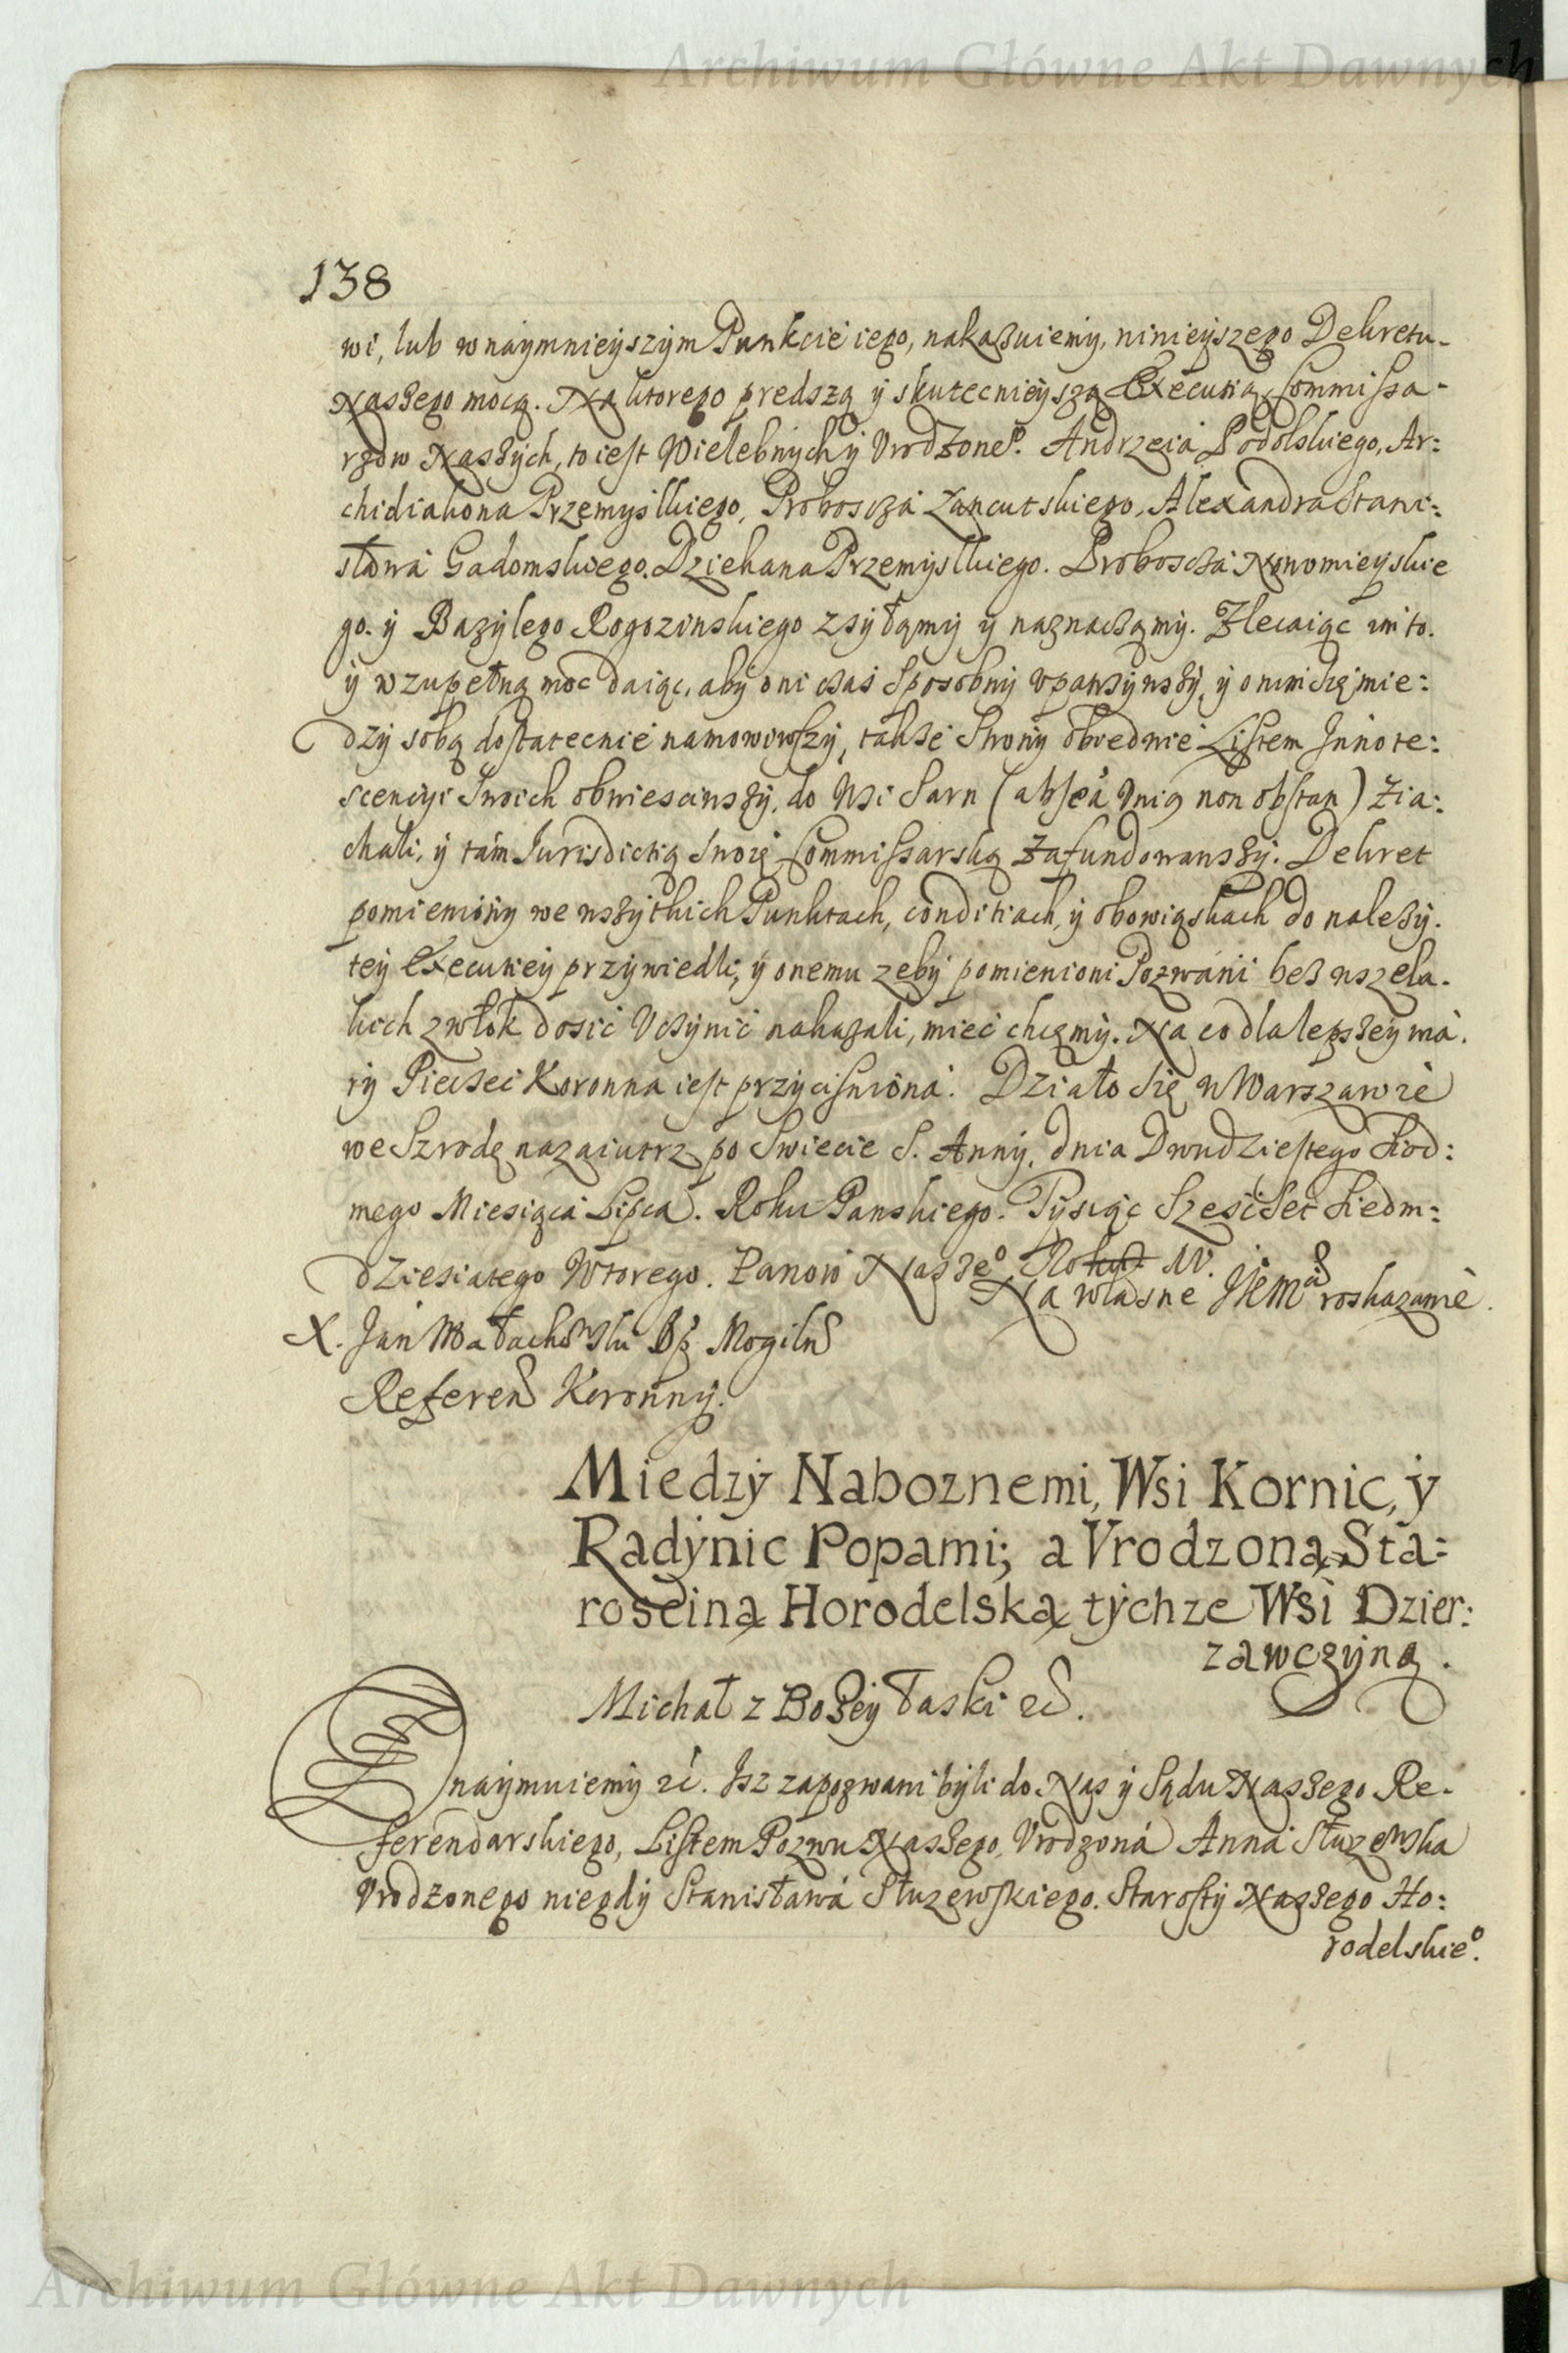 Archiwum Główne Akt Dawnych
138
wi, lub w naymnieyszym Punkcie iego, nakazuiemy, ninieyszego Dekretu
Naszego mocą. Na ktorego predszą y skutecnieyszą Executią Commissa-
rzow Naszych, to iest Wielebnych y Vrodzone⁰. Andrzeia Podolskiego, Ar:
chidiakona Przemyslkiego, Proboscza Łancutskiego, Alexandra Stani:
sława Gadomskiego. Dziekana Przemyslkiego. Proboscza Nowomieyskie
go. y Bazylego Rogozinskiego zsyłamy y naznaczamy. Zlecaiąc im to.
y w zupełną moc daiąc, aby oni czas sposobny vpatrzywszy, y onim się mie:
dzy sobą dostatecnie namowiwszy, takze Strony obiedwie Listem Innote:
scencyi Swoich obwiesciwszy, do Wsi Sarn (absea Vnig non obstan) Zia:
chali, y tam Iurisdictią Swoię Commissarską Zafundowawszy. Dekret
pomieniony we wszytkich Punktach, conditiach, y obowiąskach do nalezy.
tey Executiey przywiedli, y onemu zeby pomienioni Pozwani bez wszela.
kich zwłok dosić Vczynić nakazali, mieć chcemy. Na co dla lepszey wia.
ry Pieczęć Koronna iest przyciśniona. Działo się w Warszawie
we Szrodę nazaiutrz po Swiecie S. Anny, dnia Dwudziestego Siod:
mego Miesiąca Lipca. Roku Panskiego. Tysiąc Szescset Siedm:
dziesiątego Wtorego. Panow Nasze⁰ Roku IV.
Na własne JKMci roskazanie.
X. Jan Małachowski Bp Mogiln
Referen Koronny.
Miedzy Naboznemi, Wsi Kornic, y
Radynic Popami; a Vrodzoną Sta:
rosciną Horodelską tychze Wsi Dzier:
zawczyną.
Michał z Bozey Łaski etc.
Znaymuiemy etc. Isz zapozwani byli do Nas y Sądu Naszego Re-
ferendarskiego, Listem Pozwu Naszego, Vrodzona Anna Słuzewska
Vrodzonego niegdy Stanisława Słuzewskiego. Starosty Naszego Ho:
rodelskie⁰.
Archiwum Główne Akt Dawnych